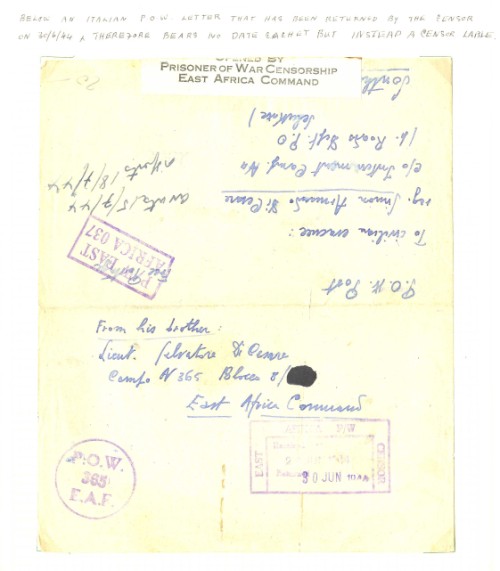 BELOW AN ITALIAN P.O.W. LETTER THAT HAS BEEN RETURNED BY THE CENSOR
ON 30/6/44 & THEREFORE BEARS NO DATE CACHET BUT INSTEAD A CENSOR LABLE.
OPENED BY
PRISONER OF WAR CENSORSHIP
EAST AFRICA COMMAND
P.O.W. Post
To civilian evacuee:
sig. Simon Armando Di Cesare
c/o Internment Camp. No
P.O
South
EAST
AFRICA 037
15/7/44
18/7/44
From his brother:
Lieut. Salvatore Di Cesare
Campo N 365 Blocco 8/
East Africa Command
P.O.W.
365
E.A.F.
EAST
AFRICA P/W
CENSOR
30 JUN 1944